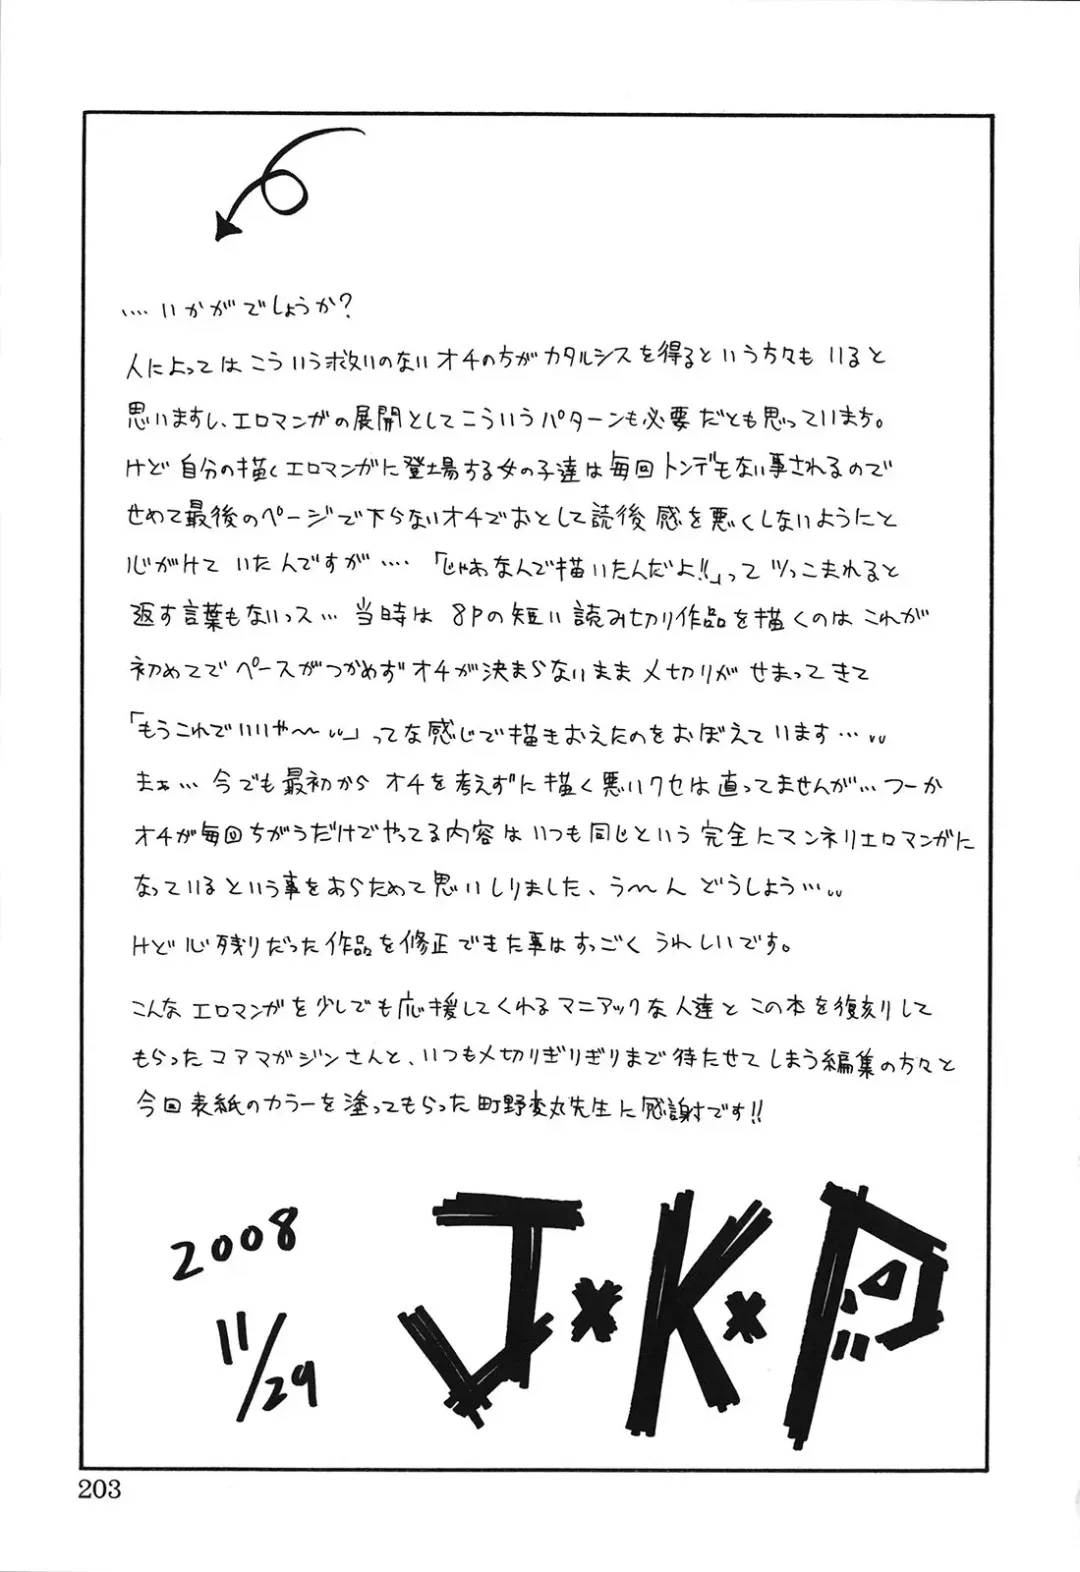 ....いかがでしょうか?
人によってはこういう救いのないオチの方がカタルシスを得るという方々もいると
思いますし、エロマンガの展開としてこういうパターンも必要だとも思っています。
けど自分の描くエロマンガに登場する女の子達は毎回トンデもない事されるので
せめて最後のページで下らないオチでおとして読後感を悪くしないようにと
心がけていたんですが....「じゃあなんで描いたんだよ!!」ってツっこまれると
返す言葉もないっス...当時は8Pの短い読み切り作品を描くのはこれが
初めてでペースがつかめずオチが決まらないままメ切りがせまってきて
「もうこれでいいや〜」ってな感じで描きおえたのをおぼえています...
まぁ...今でも最初からオチを考えずに描く悪いクセは直ってませんが...つーか
オチが毎回ちがうだけでやってる内容はいつも同じという完全にマンネリエロマンガに
なっているという事をあらためて思いしりました、う〜んどうしよう...
けど心残りだった作品を修正できた事はすっごくうれしいです。
こんなエロマンガを少しでも応援してくれるマニアックな人達とこの本を復刻して
もらったコアマガジンさんと、いつもメ切りぎりぎりまで待たせてしまう編集の方々と
今回表紙のカラーを塗ってもらった町野変丸先生に感謝です!!
2008
11/29
J*K*P
203